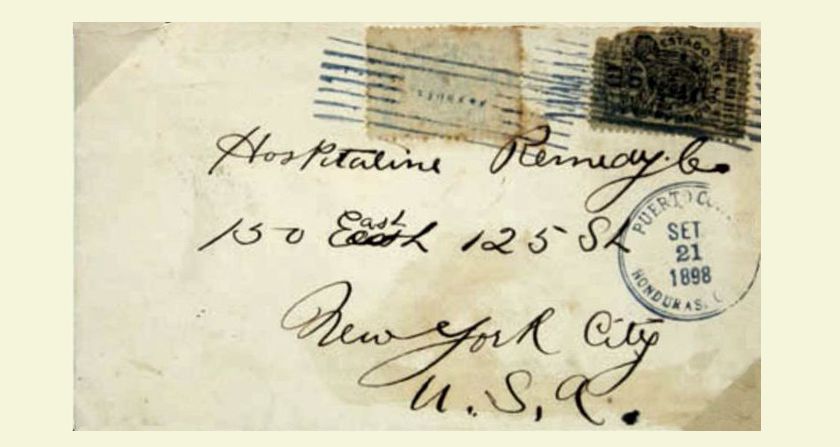 ESTADO DE
Hospitaline Remedy Co.
150 East 125 St
East
New York City
U.S.A.
PUERTO
SET
21
1898
HONDURAS.